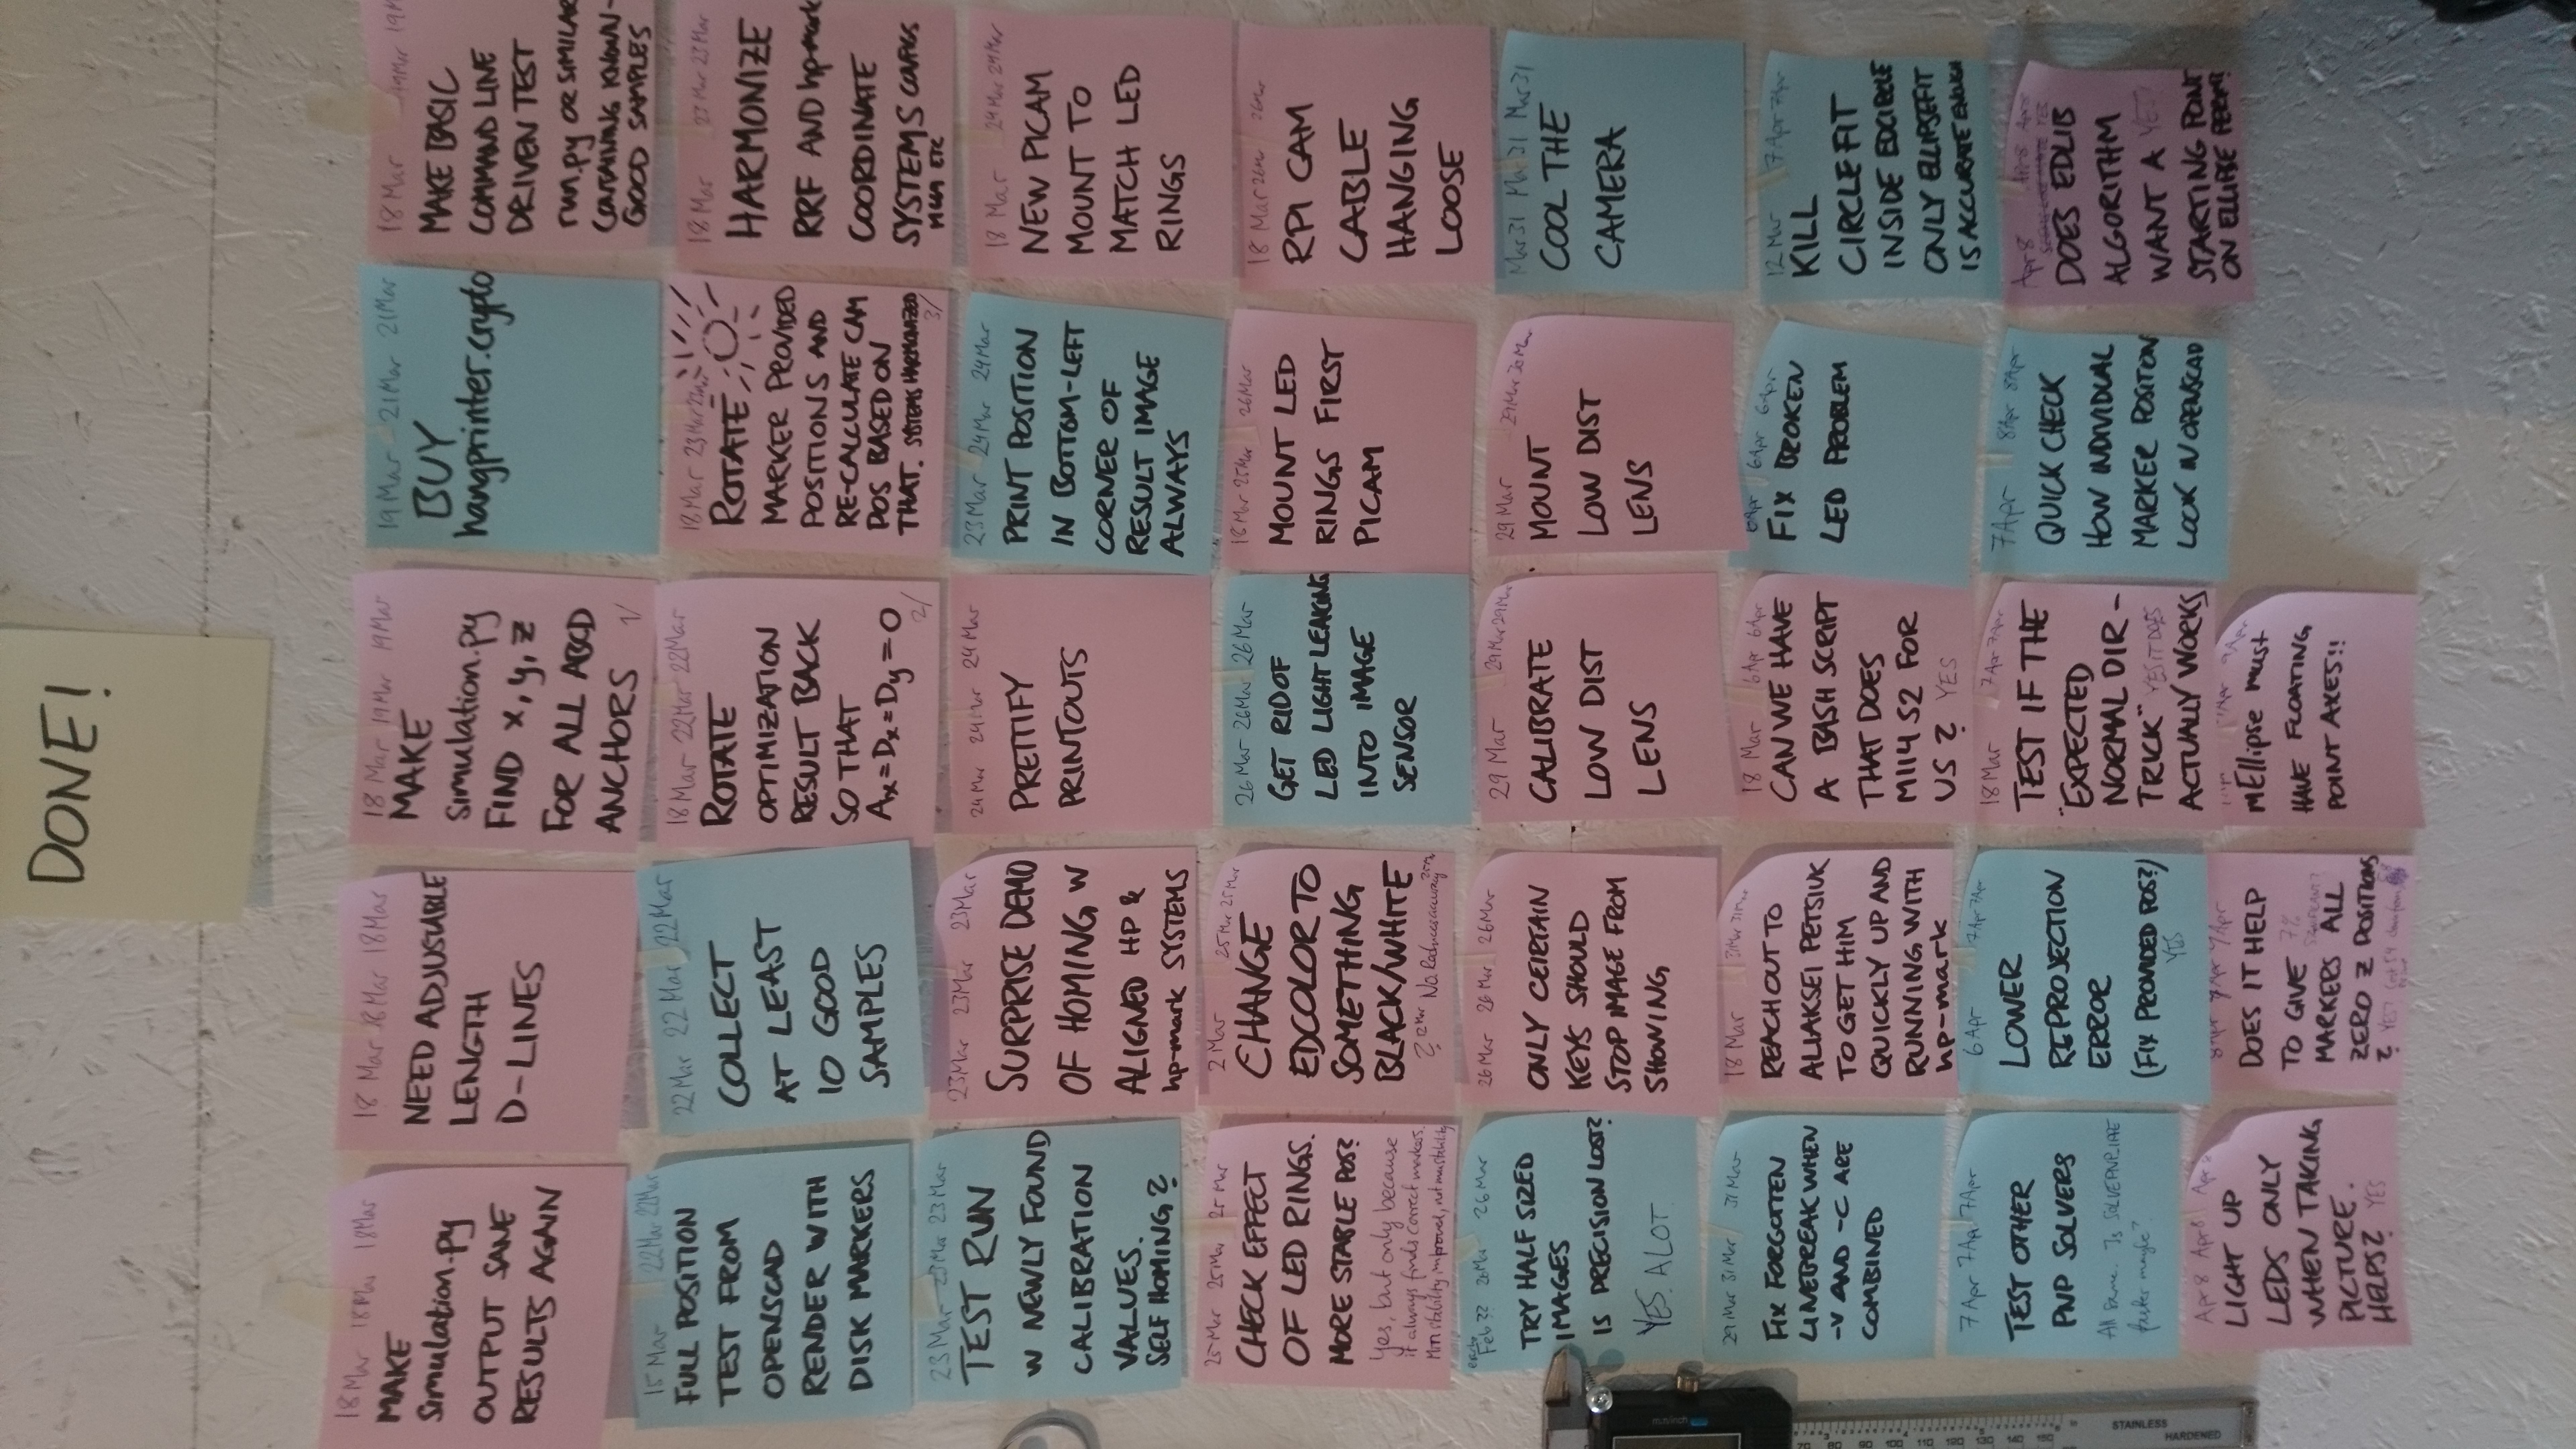 DONE!
18 Mar 18 Mar 18 Mar
MAKE
simulation.py
OUTPUT SANE
RESULTS AGAIN
18 Mar 18 Mar 18 Mar
NEED ADJUSTABLE
LENGTH
D-LINES
18 Mar 19 Mar 19 Mar
MAKE
simulation.py
FIND x, y, z
FOR ALL ABCD
ANCHORS 1/
19 Mar 21 Mar 21 Mar
BUY
hangprinter.crypto
18 Mar 19 Mar 19 M
MAKE BASIC
COMMAND LINE
DRIVEN TEST
run.py OR SIMILAR
CONTAINING KNOWN-
GOOD SAMPLES
15 Mar 22 Mar 22 Mar
FULL POSITION
TEST FROM
OPENSCAD
RENDER WITH
DISK MARKERS
22 Mar 22 Mar 22 Mar
COLLECT
AT LEAST
10 GOOD
SAMPLES
18 Mar 22 Mar 22 Mar
ROTATE
OPTIMIZATION
RESULT BACK
SO THAT
Ax = Dx = Dy = 0
2/
18 Mar 23 Mar 23 Mar
ROTATE
MARKER PROVIDED
POSITIONS AND
RE-CALCULATE CAM
POS BASED ON
THAT. SYSTEMS HARMONIZED
3/
18 Mar 23 Mar 23 Mar
HARMONIZE
RRF AND hp-mark
COORDINATE
SYSTEMS CONFIGS
ETC
23 Mar 23 Mar 23 Mar
TEST RUN
W NEWLY FOUND
CALIBRATION
VALUES.
SELF HOMING?
23 Mar 23 Mar 23 Mar
SURPRISE DEMO
OF HOMING W
ALIGNED HP &
hp-mark SYSTEMS
24 Mar 24 Mar 24 Mar
PRETTIFY
PRINTOUTS
23 Mar 24 Mar 24 Mar
PRINT POSITION
IN BOTTOM-LEFT
CORNER OF
RESULT IMAGE
ALWAYS
18 Mar 24 Mar 24 Mar
NEW PICAM
MOUNT TO
MATCH LED
RINGS
25 Mar 25 Mar 25 Mar
CHECK EFFECT
OF LED RINGS.
MORE STABLE POS?
Yes, but only because
it always finds correct markers.
stability improved, not
2 Mar 25 Mar 25 Mar
CHANGE
EDCOLOR TO
SOMETHING
BLACK/WHITE
? 12 Mar No. Reduces accuracy 25 Mar
26 Mar 26 Mar 26 Mar
GET RID OF
LED LIGHT LEAKING
INTO IMAGE
SENSOR
18 Mar 25 Mar 26 Mar
MOUNT LED
RINGS FIRST
PICAM
18 Mar 26 Mar 26 Mar
RPI CAM
CABLE
HANGING
LOOSE
Feb 26 Mar 26 Mar
TRY HALF SIZED
IMAGES
IS PRECISION LOST?
YES. A LOT
26 Mar 26 Mar 26 Mar
ONLY CERTAIN
KEYS SHOULD
STOP IMAGE FROM
SHOWING
29 Mar 29 Mar 29 Mar
CALIBRATE
LOW DIST
LENS
29 Mar 29 Mar 30 Mar
MOUNT
LOW DIST
LENS
Mar 31 Mar 31 Mar 31
COOL THE
CAMERA
29 Mar 31 Mar 31 Mar
FIX FORGOTTEN
LINEBREAK WHEN
-V AND -C ARE
COMBINED
18 Mar 31 Mar 31 Mar
REACH OUT TO
ALIAKSEI PETSIUK
TO GET HIM
QUICKLY UP AND
RUNNING WITH
hp-mark
18 Mar 6 Apr 6 Apr
CAN WE HAVE
A BASH SCRIPT
THAT DOES
M114 S2 FOR
US? YES
6 Apr 6 Apr 6 Apr
FIX BROKEN
LED PROBLEM
12 Mar 7 Apr 7 Apr
KILL
CIRCLEFIT
INSIDE EDCIRCLE
ONLY ELLIPSEFIT
IS ACCURATE ENOUGH
7 Apr 7 Apr 7 Apr
TEST OTHER
PNP SOLVERS
All same. Is SOLVEPNP_IPPE
faster maybe?
6 Apr 7 Apr 7 Apr
LOWER
REPROJECTION
ERROR
(FIX PROVIDED POS?)
YES
18 Mar 7 Apr 7 Apr
TEST IF THE
"EXPECTED
NORMAL DIR-
TRICK" YES IT DOES
ACTUALLY WORKS
7 Apr 8 Apr 8 Apr
QUICK CHECK
HOW INDIVIDUAL
MARKER POSITION
LOOK IN OPENSCAD
Apr 8 Apr 8 Apr 8
DOES EDLIB
ALGORITHM
WANT A YES
STARTING POINT
ON ELLIPSE PERIM?
Apr 8 Apr 8 Apr 8
LIGHT UP
LEDS ONLY
WHEN TAKING
PICTURE.
HELPS? YES
8 Apr 9 Apr 9 Apr
DOES IT HELP
TO GIVE 7%
SIGNIFICANT?
MARKERS ALL
ZERO Z POSITIONS
? YES?
9 Apr
mEllipse must
HAVE FLOATING
POINT AXES!!
STAINLESS
HARDENED